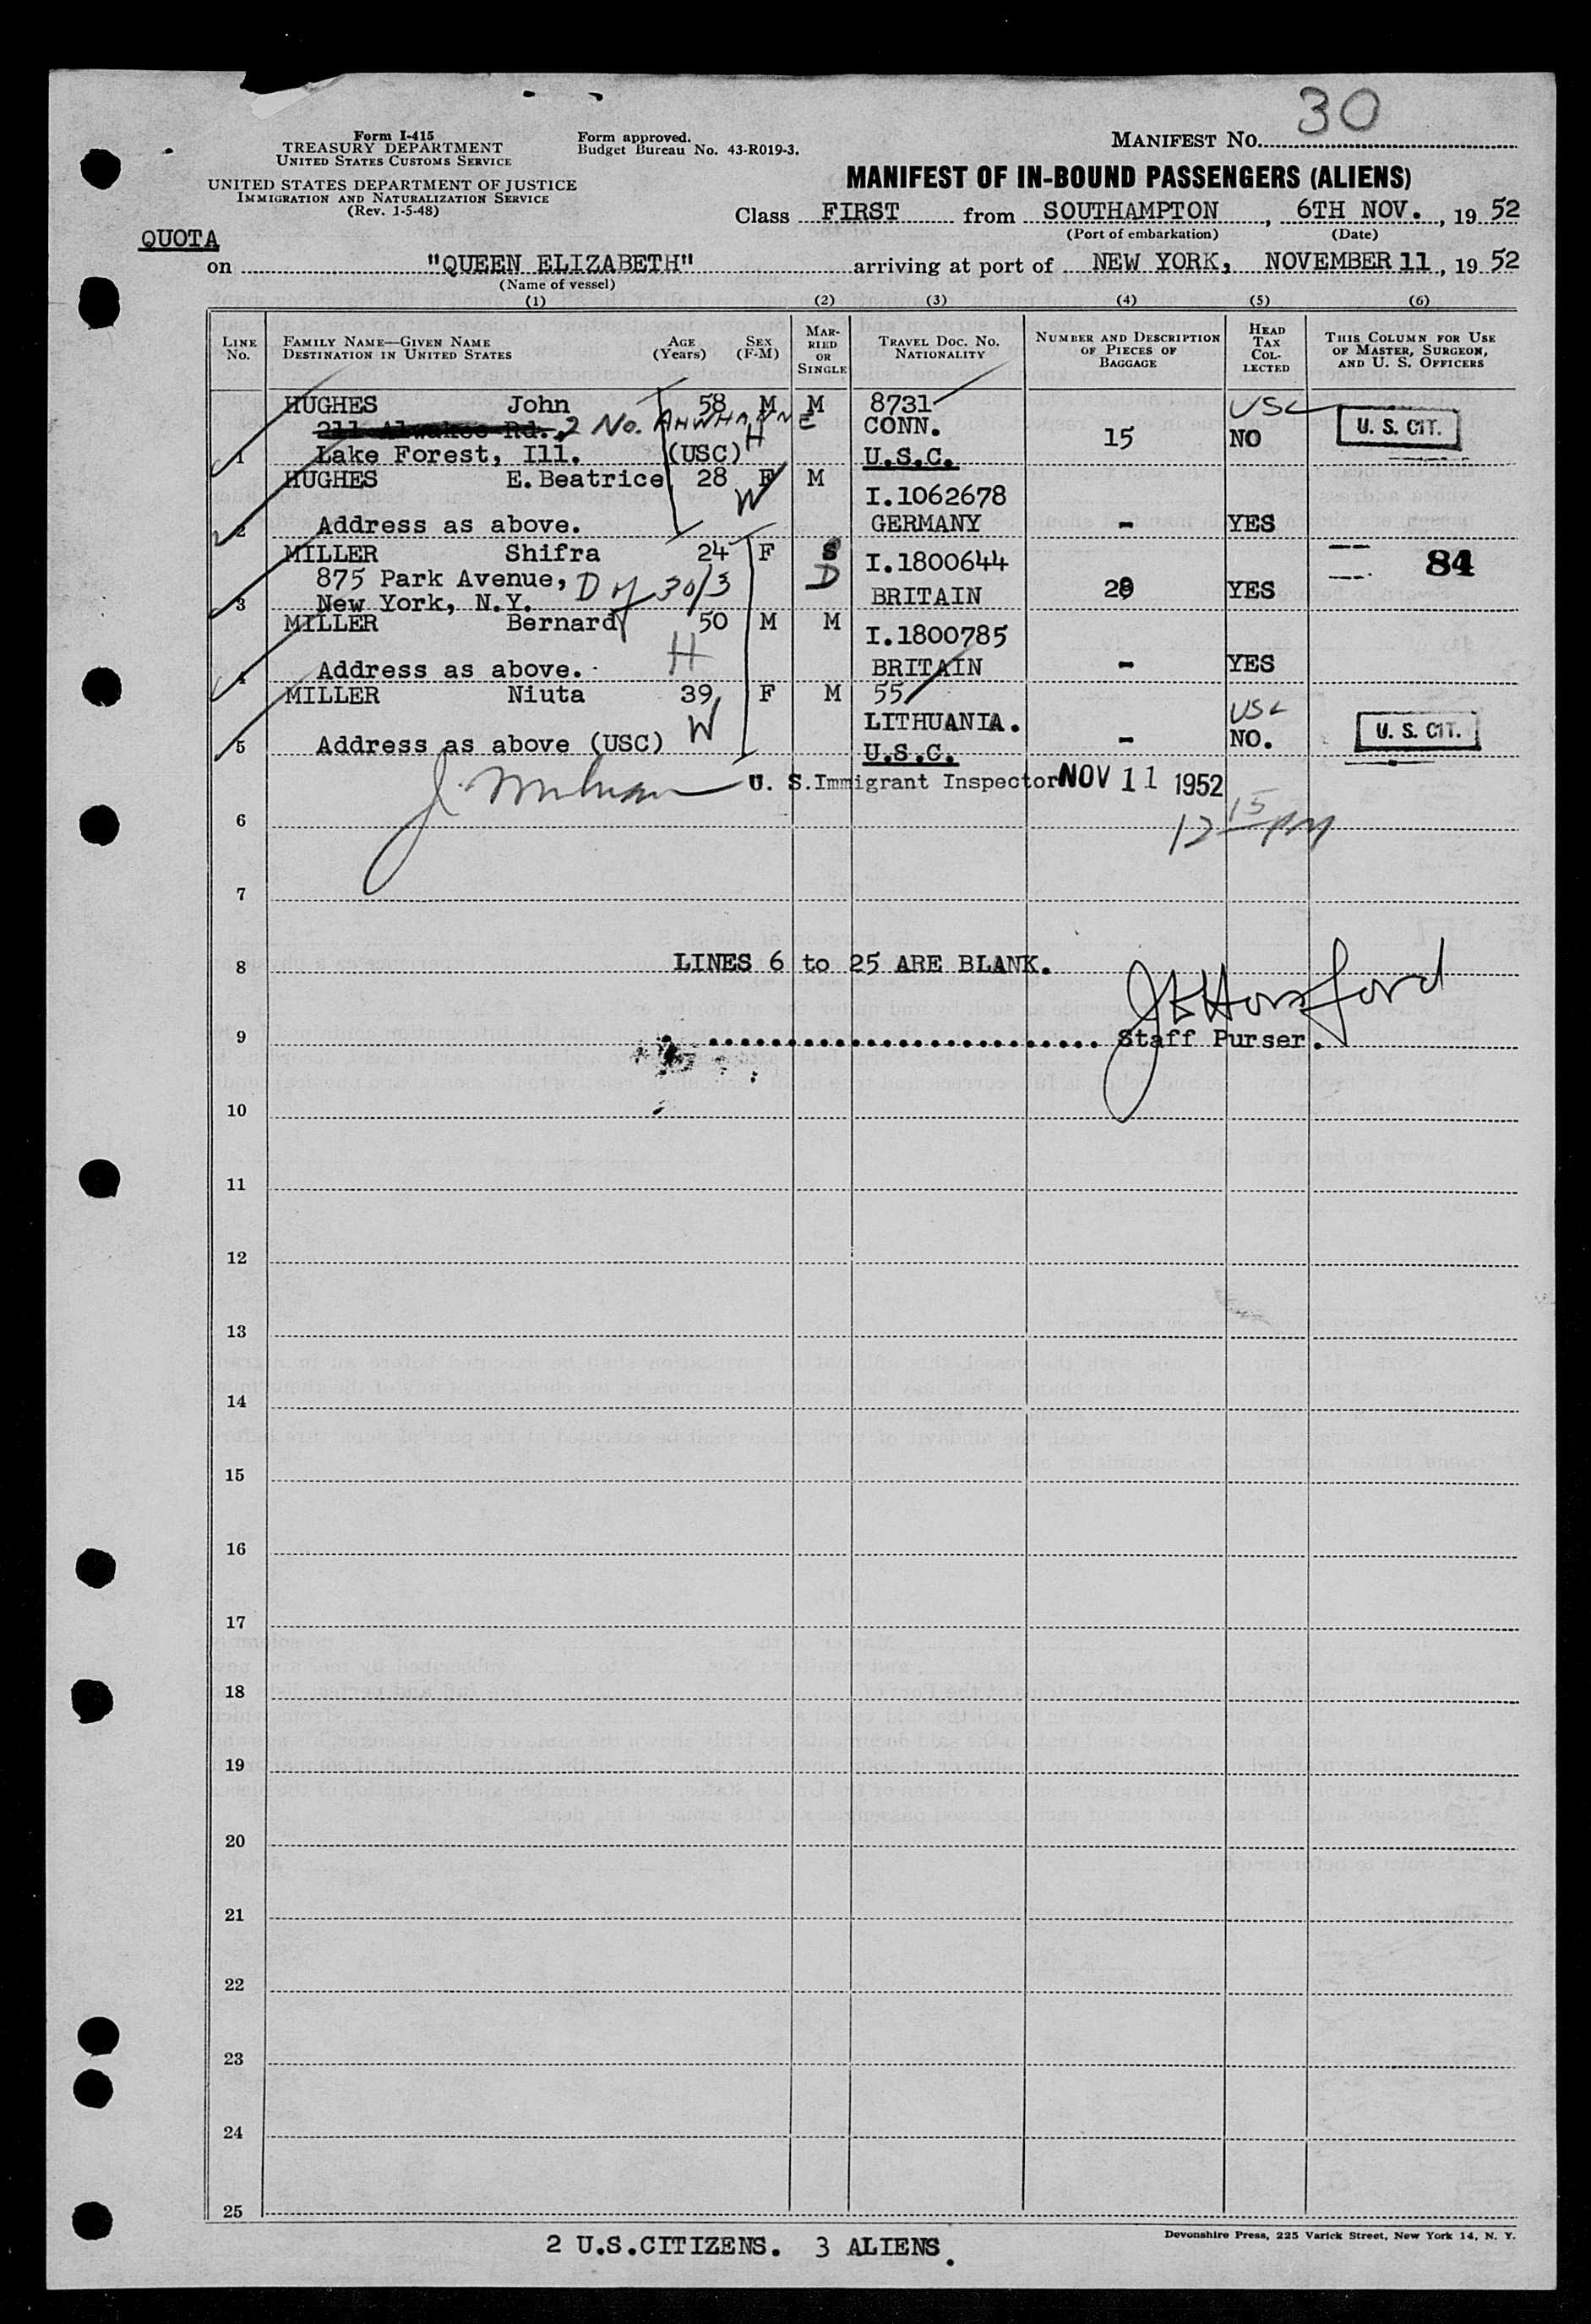 30
Form I-415
TREASURY DEPARTMENT
UNITED STATES CUSTOMS SERVICE
Form approved.
Budget Bureau No. 43-R019-3.
MANIFEST No.
UNITED STATES DEPARTMENT OF JUSTICE
IMMIGRATION AND NATURALIZATION SERVICE
(Rev. 1-5-48)
MANIFEST OF IN-BOUND PASSENGERS (ALIENS)
Class FIRST from SOUTHAMPTON, 6TH NOV., 1952
(Port of embarkation) (Date)
QUOTA
on "QUEEN ELIZABETH" arriving at port of NEW YORK, NOVEMBER 11, 1952
(Name of vessel)
(1) (2) (3) (4) (5) (6)
LINE No. FAMILY NAME—GIVEN NAME DESTINATION IN UNITED STATES AGE (Years) SEX (F-M) MARRIED OR SINGLE TRAVEL DOC. NO. NATIONALITY NUMBER AND DESCRIPTION OF PIECES OF BAGGAGE HEAD TAX COLLECTED THIS COLUMN FOR USE OF MASTER, SURGEON, AND U. S. OFFICERS
HUGHES John 58 M M 8731 USC
2 No. AHWHANNE H CONN. 15 NO U. S. CIT.
1 Lake Forest, Ill. (USC) U.S.C.
HUGHES E. Beatrice 28 F M I.1062678
W
2 Address as above. GERMANY - YES
MILLER Shifra 24 F S I.1800644 84
875 Park Avenue, D of 30/3 D BRITAIN 28 YES
3 New York, N.Y.
MILLER Bernard 50 M M I.1800785
H
4 Address as above. BRITAIN - YES
MILLER Niuta 39 F M 55
W LITHUANIA. USC
5 Address as above (USC) U.S.C. - NO. U. S. CIT.
U. S. Immigrant Inspector NOV 11 1952
6 12 15 PM
7
8 LINES 6 to 25 ARE BLANK.
9 Staff Purser.
10
11
12
13
14
15
16
17
18
19
20
21
22
23
24
25
Devonshire Press, 225 Varick Street, New York 14, N. Y.
2 U.S.CITIZENS. 3 ALIENS.